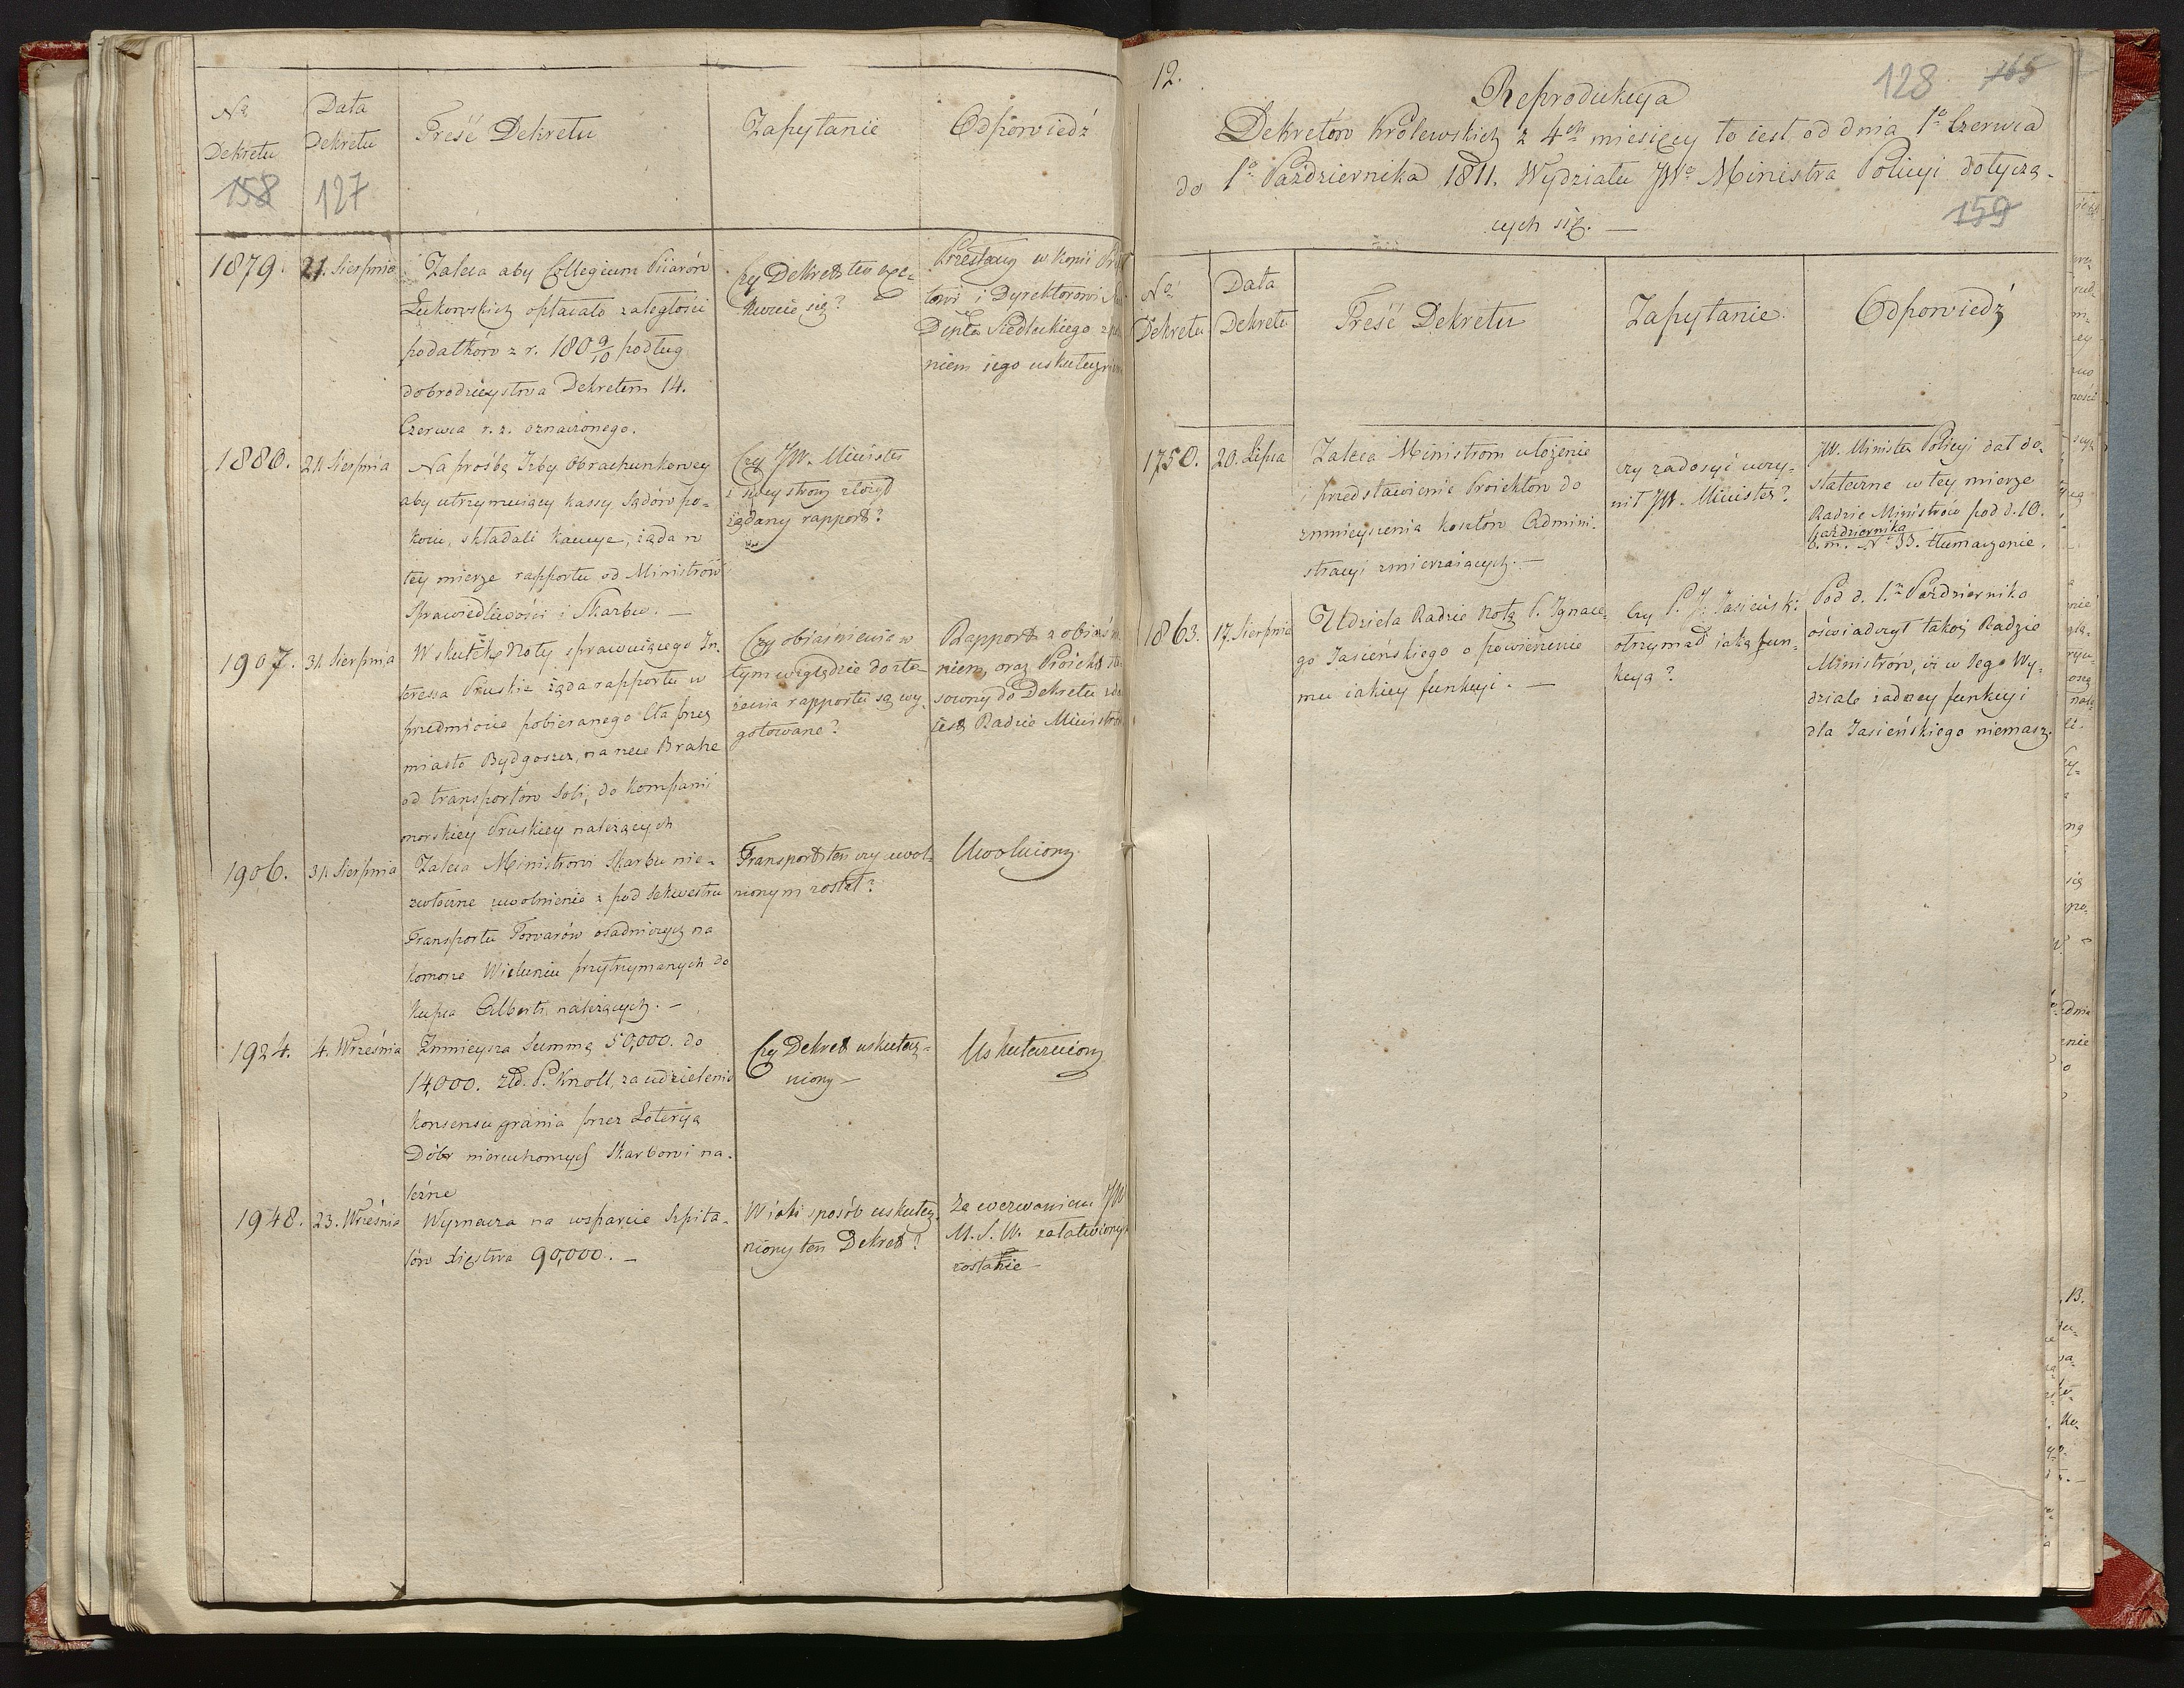 No
Dekretu
Data
Dekretu
Treść Dekretu
Zapytanie
Odpowiedź
158
127
1879.
21. Sierpnia
Zaleca aby Collegium Piiarów
Łukowskich opłacało zaległości
podatków z r. 180 9/10 podług
dobrodzieystwa Dekretem 14.
Czerwca r. z. oznaczonego.
Czy Dekret ten exe-
kwuie się?
Przesłany w Kopii
i Dyrektorowi
Depłu Siedleckiego
niem iego
1880.
21 Sierpnia
Na prośbę Izby Obrachunkowey
aby utrzymuiący kassy Sądów po-
koiu, składali kaucye, żąda w
tey mierze rapportu od Ministrów
Sprawiedliwości i Skarbu. —
Czy JW. Minister
z swey strony złożył
żądany rapport?
1907.
31 Sierpnia
W skutek Noty sprawuiącego In-
teressa Pruskie żąda rapportu w
przedmiocie pobieranego Cła przez
miasto Bydgoszcz, na rzece Brahe
od transportów Soli, do Kompanii
morskiey Pruskiey należących
Czy obiaśnienia w
tym względzie do zło-
żenia rapportu są wy-
gotowane?
Rapport z
niem, oraz Proiekt
sowny do Dekretu
iest Radzie
1906.
31 Sierpnia
Zaleca Ministrowi Skarbu nie-
zwłoczne uwolnienie z pod sekwestru
Transportu Towarów osadniczych na
komorze Wieluniu przytrzymanych do
kupca Alberti należących. —
Transport ten czy uwol-
nionym został?
Uwolniony
1924.
4. Września
Zmnieysza Summę 50,000. do
14,000. złł. P. Knoll, za udzielenie
konsensu grania przez Loteryą
Dóbr nieruchomych Skarbowi na-
leżne
Czy Dekret uskutecz-
niony —
Uskuteczniony
1948.
23. Września
Wyznacza na wsparcie Szpita-
lów Xięstwa 90,000. —
W iaki sposób uskutecz-
niony ten Dekret?
Za wezwaniem JW
M. S. W. załatwionym
zostanie —
12.
128
165
Reprodukcya
Dekretów Królewskich z 4ch miesięcy to iest od dnia 1o Czerwca
do 1o Października 1811. Wydziału JWo Ministra Policyi dotyczą-
cych się. —
159
No
Dekretu
Data
Dekretu
Treść Dekretu
Zapytanie
Odpowiedź
1750.
20. Lipca
Zaleca Ministrom ułożenie
i przedstawienie Proiektów do
zmnieyszenia kosztów Admini-
stracyi zmierzaiących. —
czy zadosyć uczy-
nił JW. Minister?
JW. Minister Policyi dał do-
stateczne w tey mierze
Radzie Ministrów pod d. 10.
Października
b. m. No 33. tłumaczenie.
1863.
17. Sierpnia
Udziela Radzie Notę P. Ignace-
go Jasieńskiego o powierzenie
mu iakiey funkcyi. —
Czy P. J. Jasieński
otrzymał iaką fun-
kcyą?
Pod d. 1m Października
oświadczył takoż Radzie
Ministrów, iż w Jego Wy-
dziale żadney funkcyi
dla Jasieńskiego niemasz.